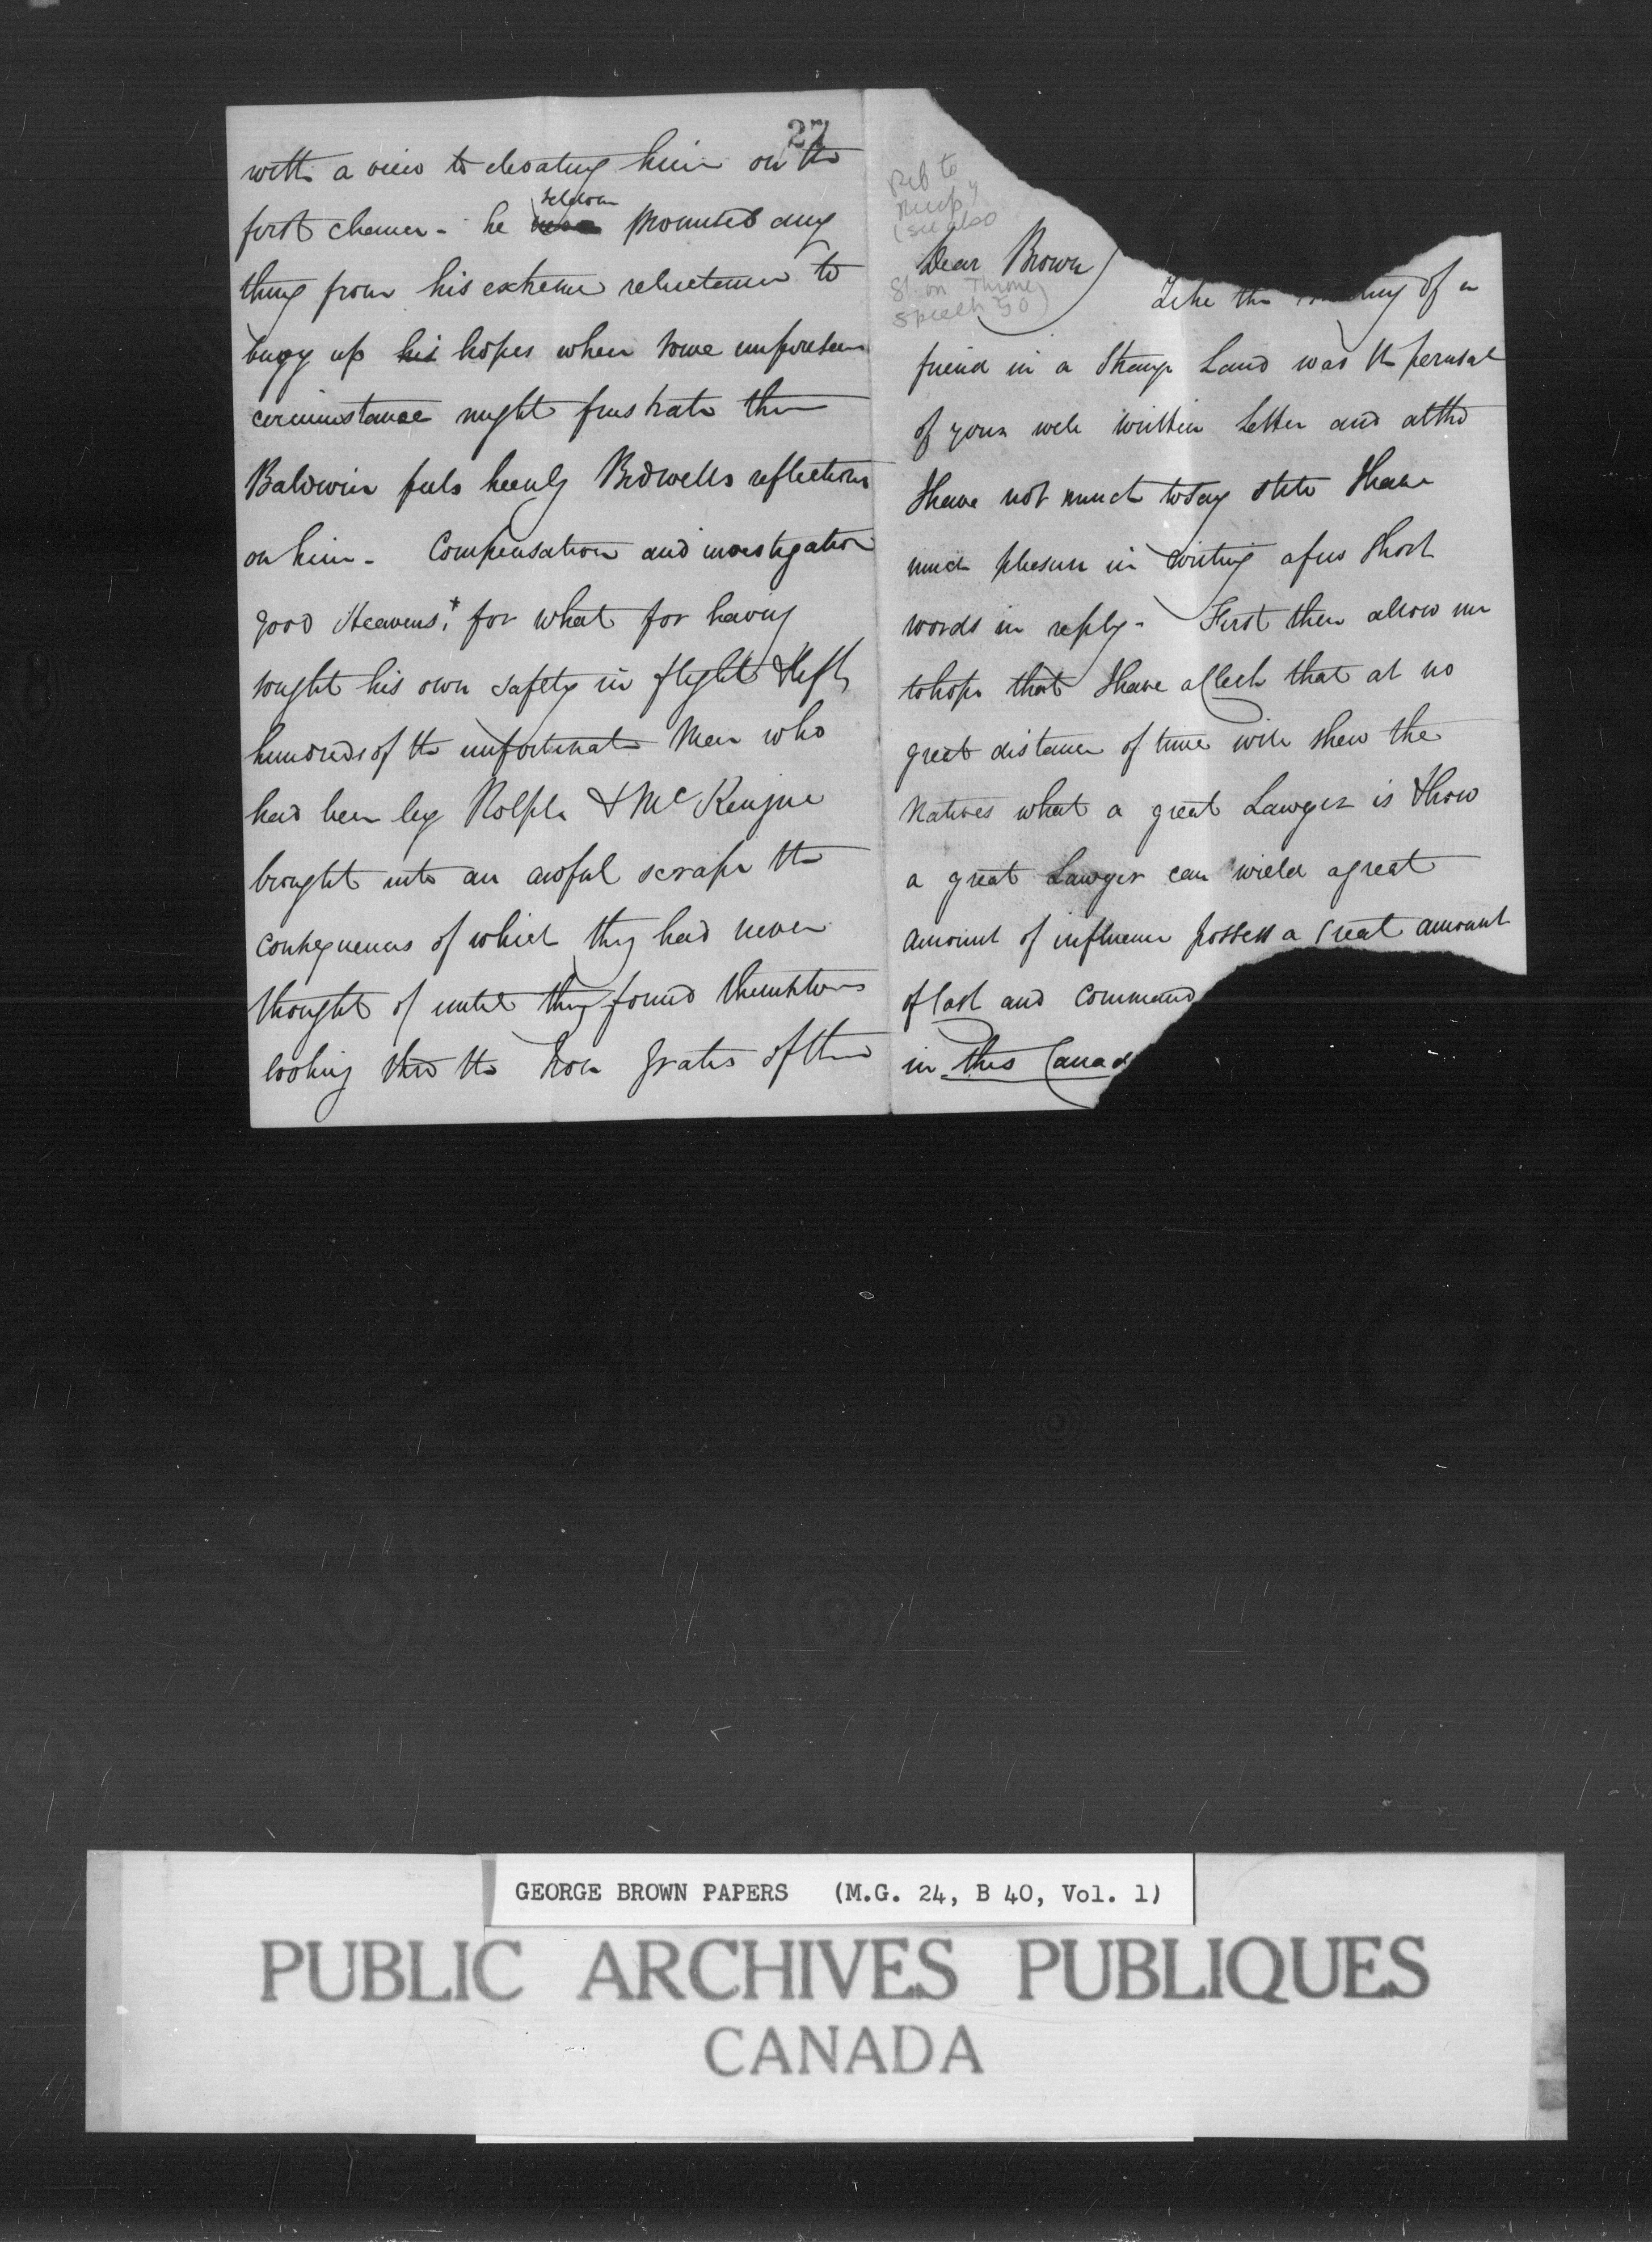 27
with a view to elevating him on the
first chance - he seldom promised any
thing from his extreme reluctance to
buoy up his hopes when some unforseen
circumstance might frustrate them
Baldwin feels keenly Bidwells reflections
on him - Compensation and investigation
good Heavens! for what for having
sought his own safety in flight & left
hundreds of the unfortunate Men who
had been by Rolph & McKenzie
brought into an awful scrape the
consequences of which they had never
thought of until they found themselves
looking thro the Iron grates of the
Reb to
(see also
Dear Brown
Sp. on Throne
Speech 50)
Like the of a
friend in a Strange Land was the perusal
of your well written Letter and altho
I have not much to say still I have
much pleasure in writing a few short
words in reply - First then allow me
to hope that I have a that at no
great distance of time will shew the
Natives what a great Lawyer is & how
a great Lawyer can wield a great
amount of influence possess a great amount
of and command
in this Canad
GEORGE BROWN PAPERS (M.G. 24, B 40, Vol. 1)
PUBLIC ARCHIVES PUBLIQUES
CANADA